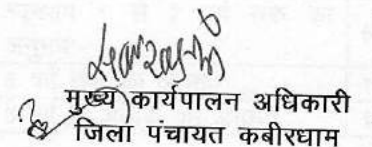 मुख्य कार्यपालन अधिकारी
जिला पंचायत कबीरधाम